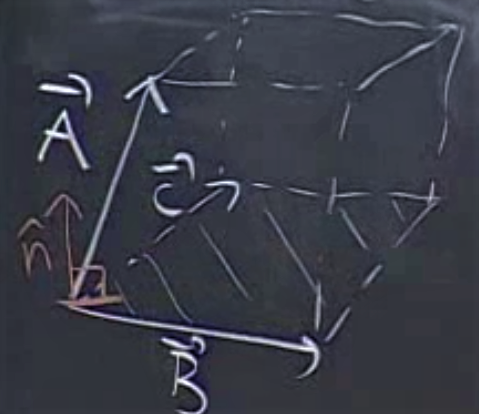 A⃗
C⃗
n̂
B⃗